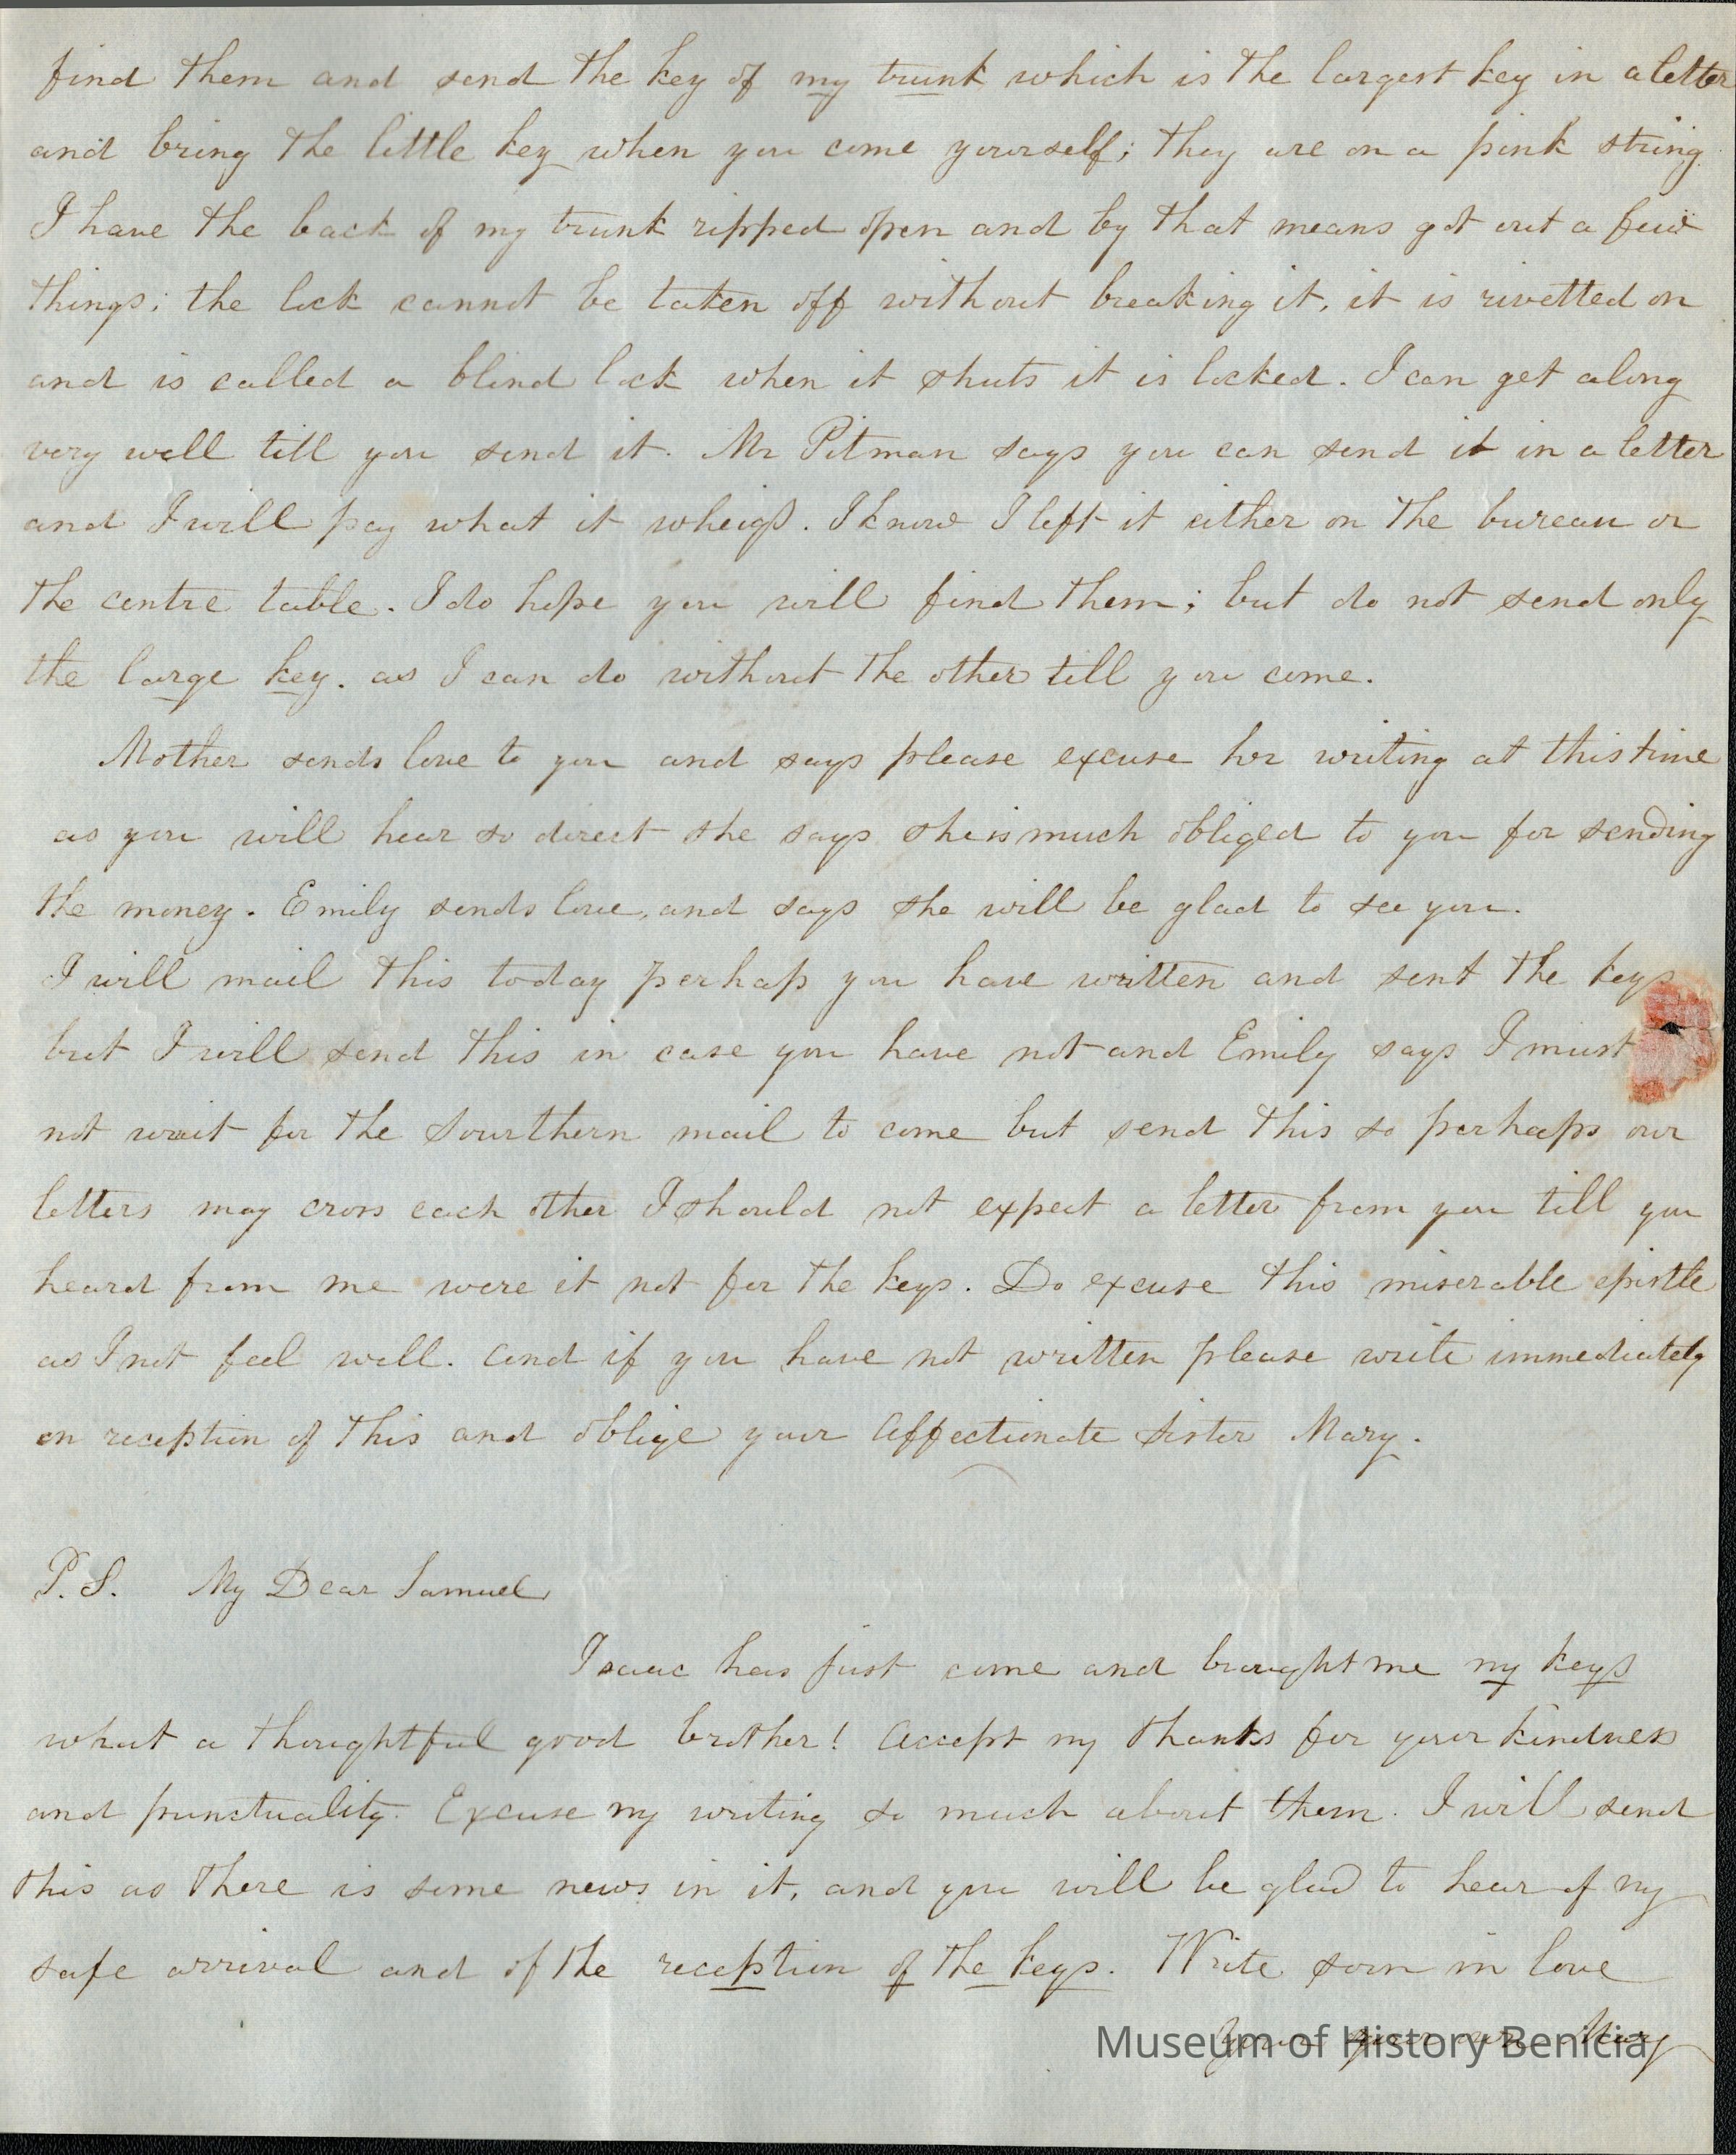 find them and send the key of my trunk which is the largest key in a letter
and bring the little key when you come yourself; they are on a pink string
I have the back of my trunk ripped open and by that means got out a few
things; the lock cannot be taken off without breaking it, it is rivetted on
and is called a blind lock when it shuts it is locked. I can get along
very well till you send it. Mr Pitman says you can send it in a letter
and I will pay what it wheighs. I know I left it either on the bureau or
the centre table. I do hope you will find them; but do not send only
the large key. as I can do without the other till you come.
Mother sends love to you and says please excuse her writing at this time
as you will hear so direct she says she is much obliged to you for sending
the money. Emily sends love, and says she will be glad to see you.
I will mail this today perhaps you have written and sent the keys
but I will send this in case you have not and Emily says I must
not wait for the Sourthern mail to come but send this so perhaps our
letters may cross each other I should not expect a letter from you till you
heard from me were it not for the keys. Do excuse this miserable epistle
as I not feel well. and if you have not written please write immediately
on reception of this and oblige your affectionate sister Mary.
P.S. My Dear Samuel
Isaac has just come and brought me my keys
what a thoughtful good brother! accept my thanks for your kindness
and punctuality. Excuse my writing so much about them. I will send
this as there is some news in it, and you will be glad to hear of my
safe arrival and of the reception of the keys. Write soon in love
your own Mary
Museum of History Benicia